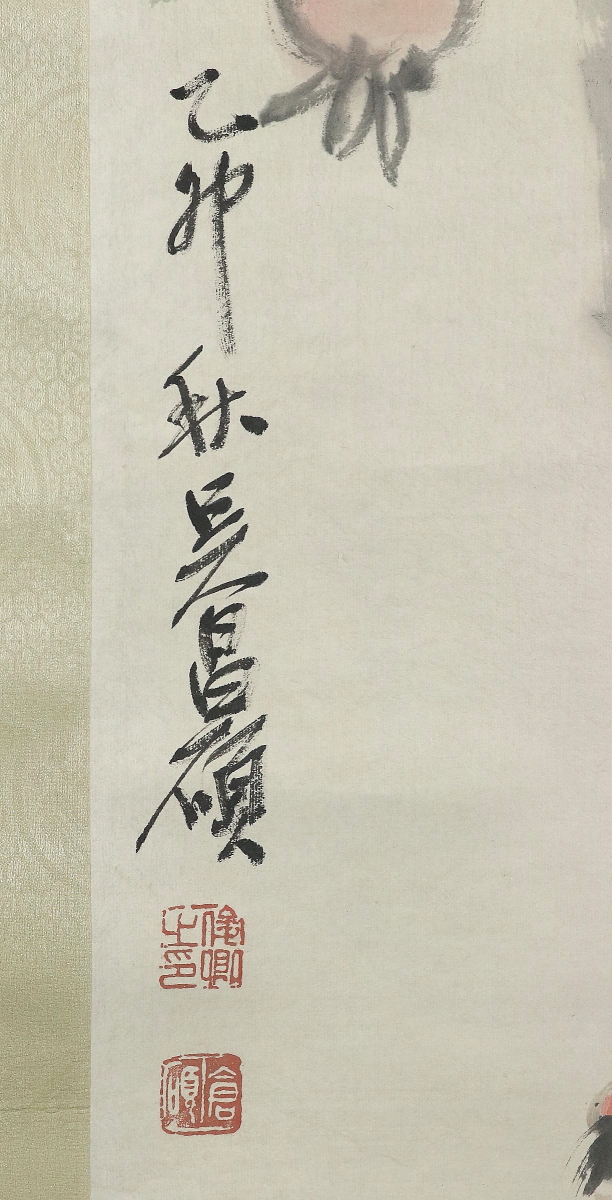 乙卯秋吳昌碩
俊卿之印
倉碩